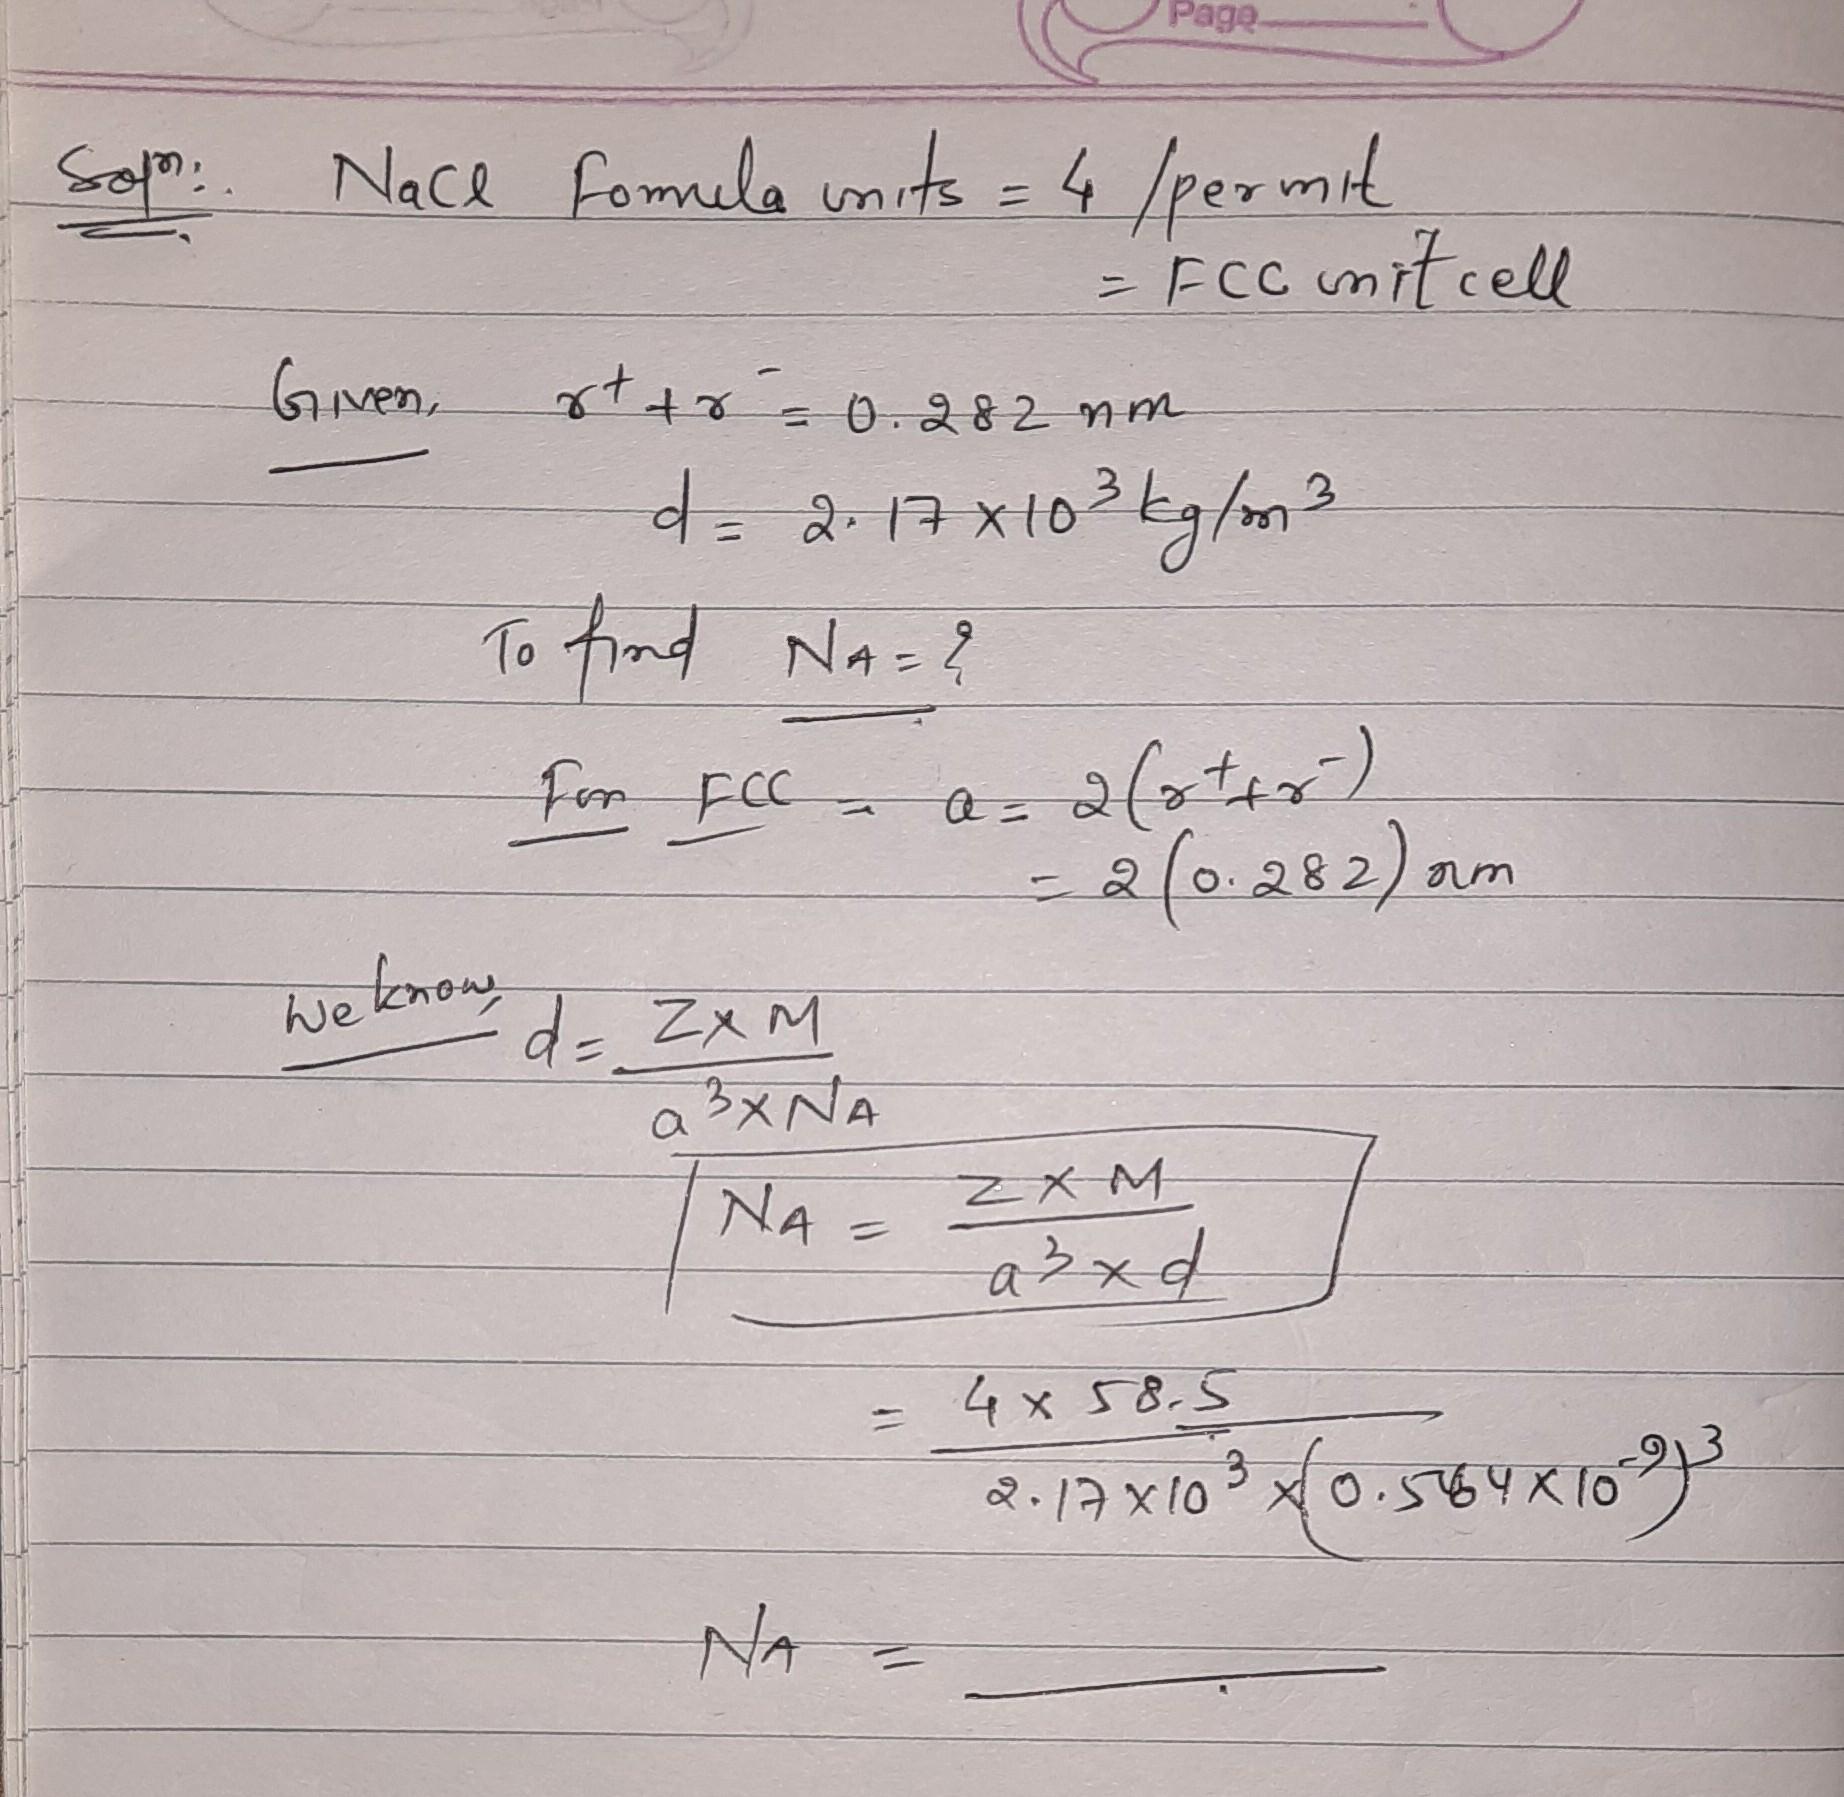 Page
Soln:. NaCl Formula units = 4 /per unit
= FCC unit cell
Given, r+ + r- = 0.282 nm
d = 2.17 x 10³ kg/m³
To find NA = ?
For FCC = a = 2(r+ + r-)
= 2(0.282) nm
We know, d = Z x M
a³ x NA
NA = Z x M
a³ x d
= 4 x 58.5
2.17 x 10³ x (0.564 x 10⁻⁹)³
NA =